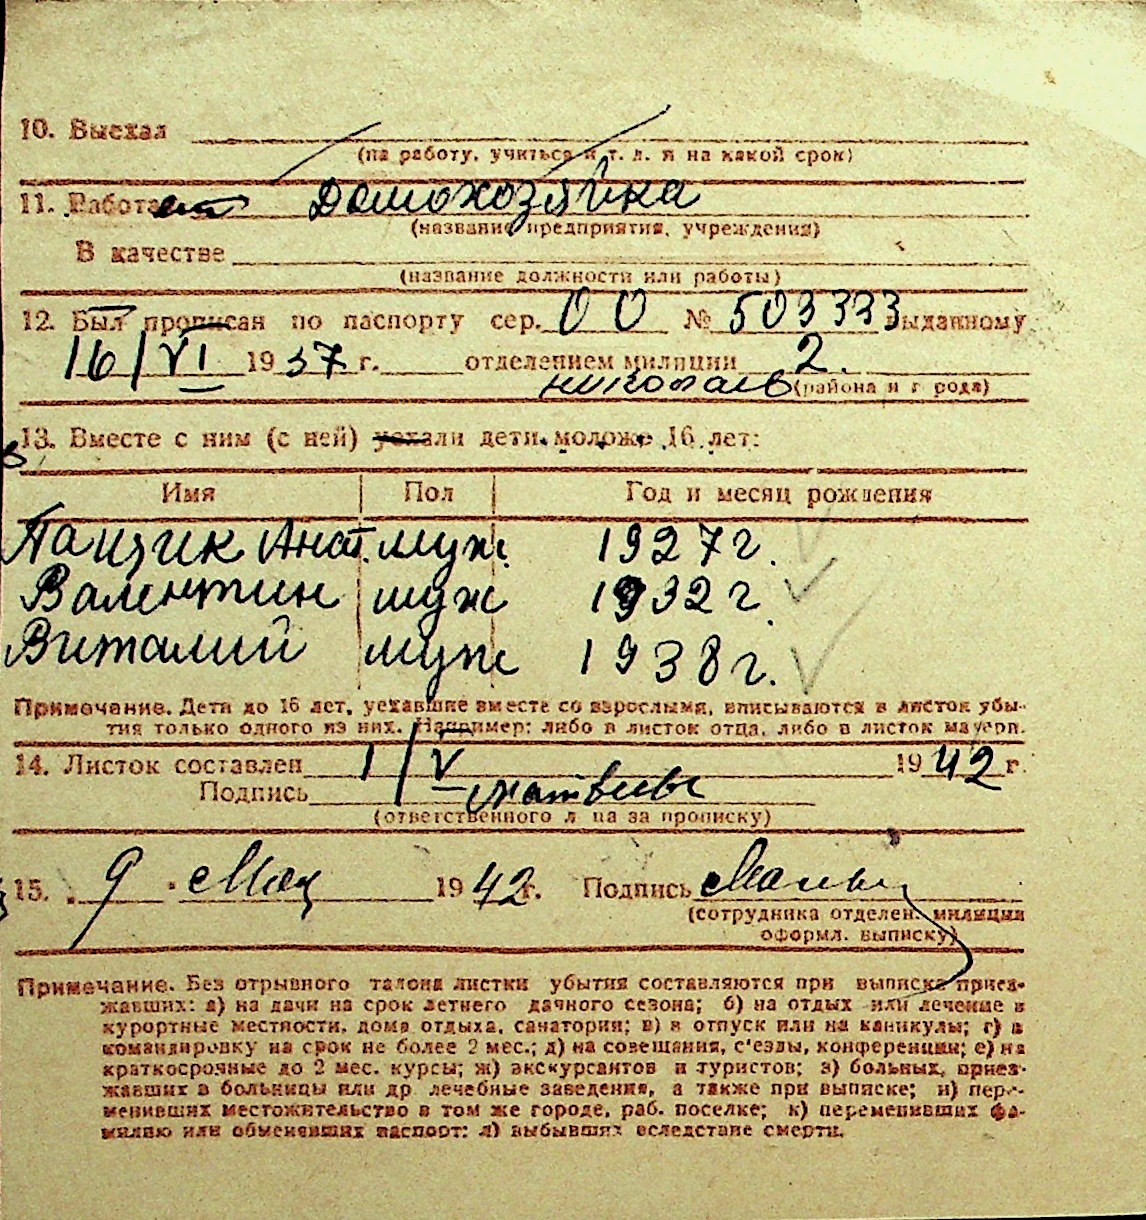 10. Выехал
(на работу, учиться и т. д. и на какой срок)
11. Работает Домохозяйка
(название предприятия, учреждения)
В качестве
(название должности или работы)
12. Был прописан по паспорту сер. 00 № 503333 выданному
16/VI 1937 г. отделением милиции 2.
николаев (района и города)
13. Вместе с ним (с ней) уехали дети моложе 16 лет:
Имя Пол Год и месяц рождения
Пащик Анат. муж 1927 г.
Валентин муж 1932 г
Виталий муж 1938 г.
Примечание. Дети до 16 лет, уехавшие вместе со взрослыми, вписываются в листок убы-
тия только одного из них. Например: либо в листок отца, либо в листок матери.
14. Листок составлен 1/V 1942 г.
Подпись
(ответственного лица за прописку)
15. 9 Мая 1942 г. Подпись
(сотрудника отделен. милиции
оформл. выписку)
Примечание. Без отрывного талона листки убытия составляются при выписке приез-
жавших: а) на дачи на срок летнего дачного сезона; б) на отдых или лечение в
курортные местности, дома отдыха, санатории; в) в отпуск или на каникулы; г) в
командировку на срок не более 2 мес.; д) на совещания, с'езды, конференции; е) на
краткосрочные до 2 мес. курсы; ж) экскурсантов и туристов; з) больных, приез-
жавших в больницы или др лечебные заведения, а также при выписке; и) пере-
менивших местожительство в том же городе, раб. поселке; к) переменивших фа-
милию или обменявших паспорт; л) выбывших вследствие смерти.